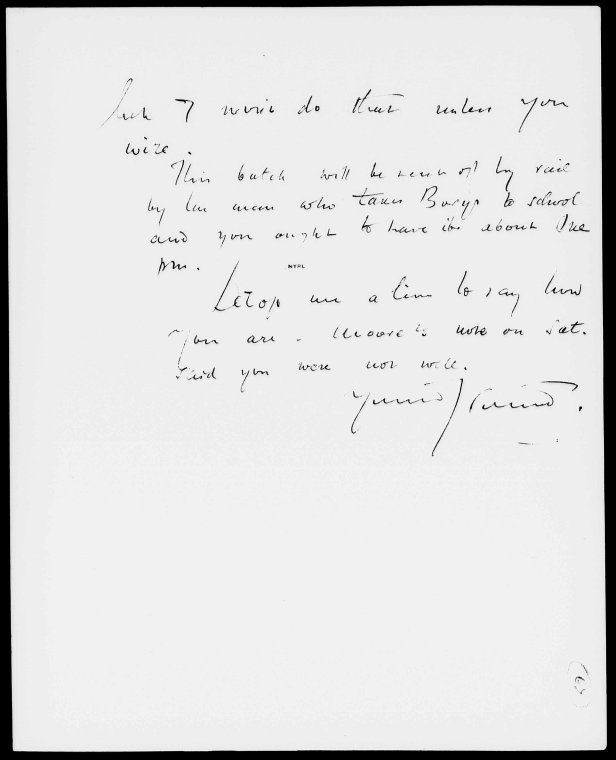 but I won't do that unless you
wire.
This batch will be sent off by rail
by the man who takes Borys to school
and you ought to have it about One
pm.
NYPL
Drop me a line to say how
you are. Moore's note on Sat.
said you were not well.
Yours J Conrad.